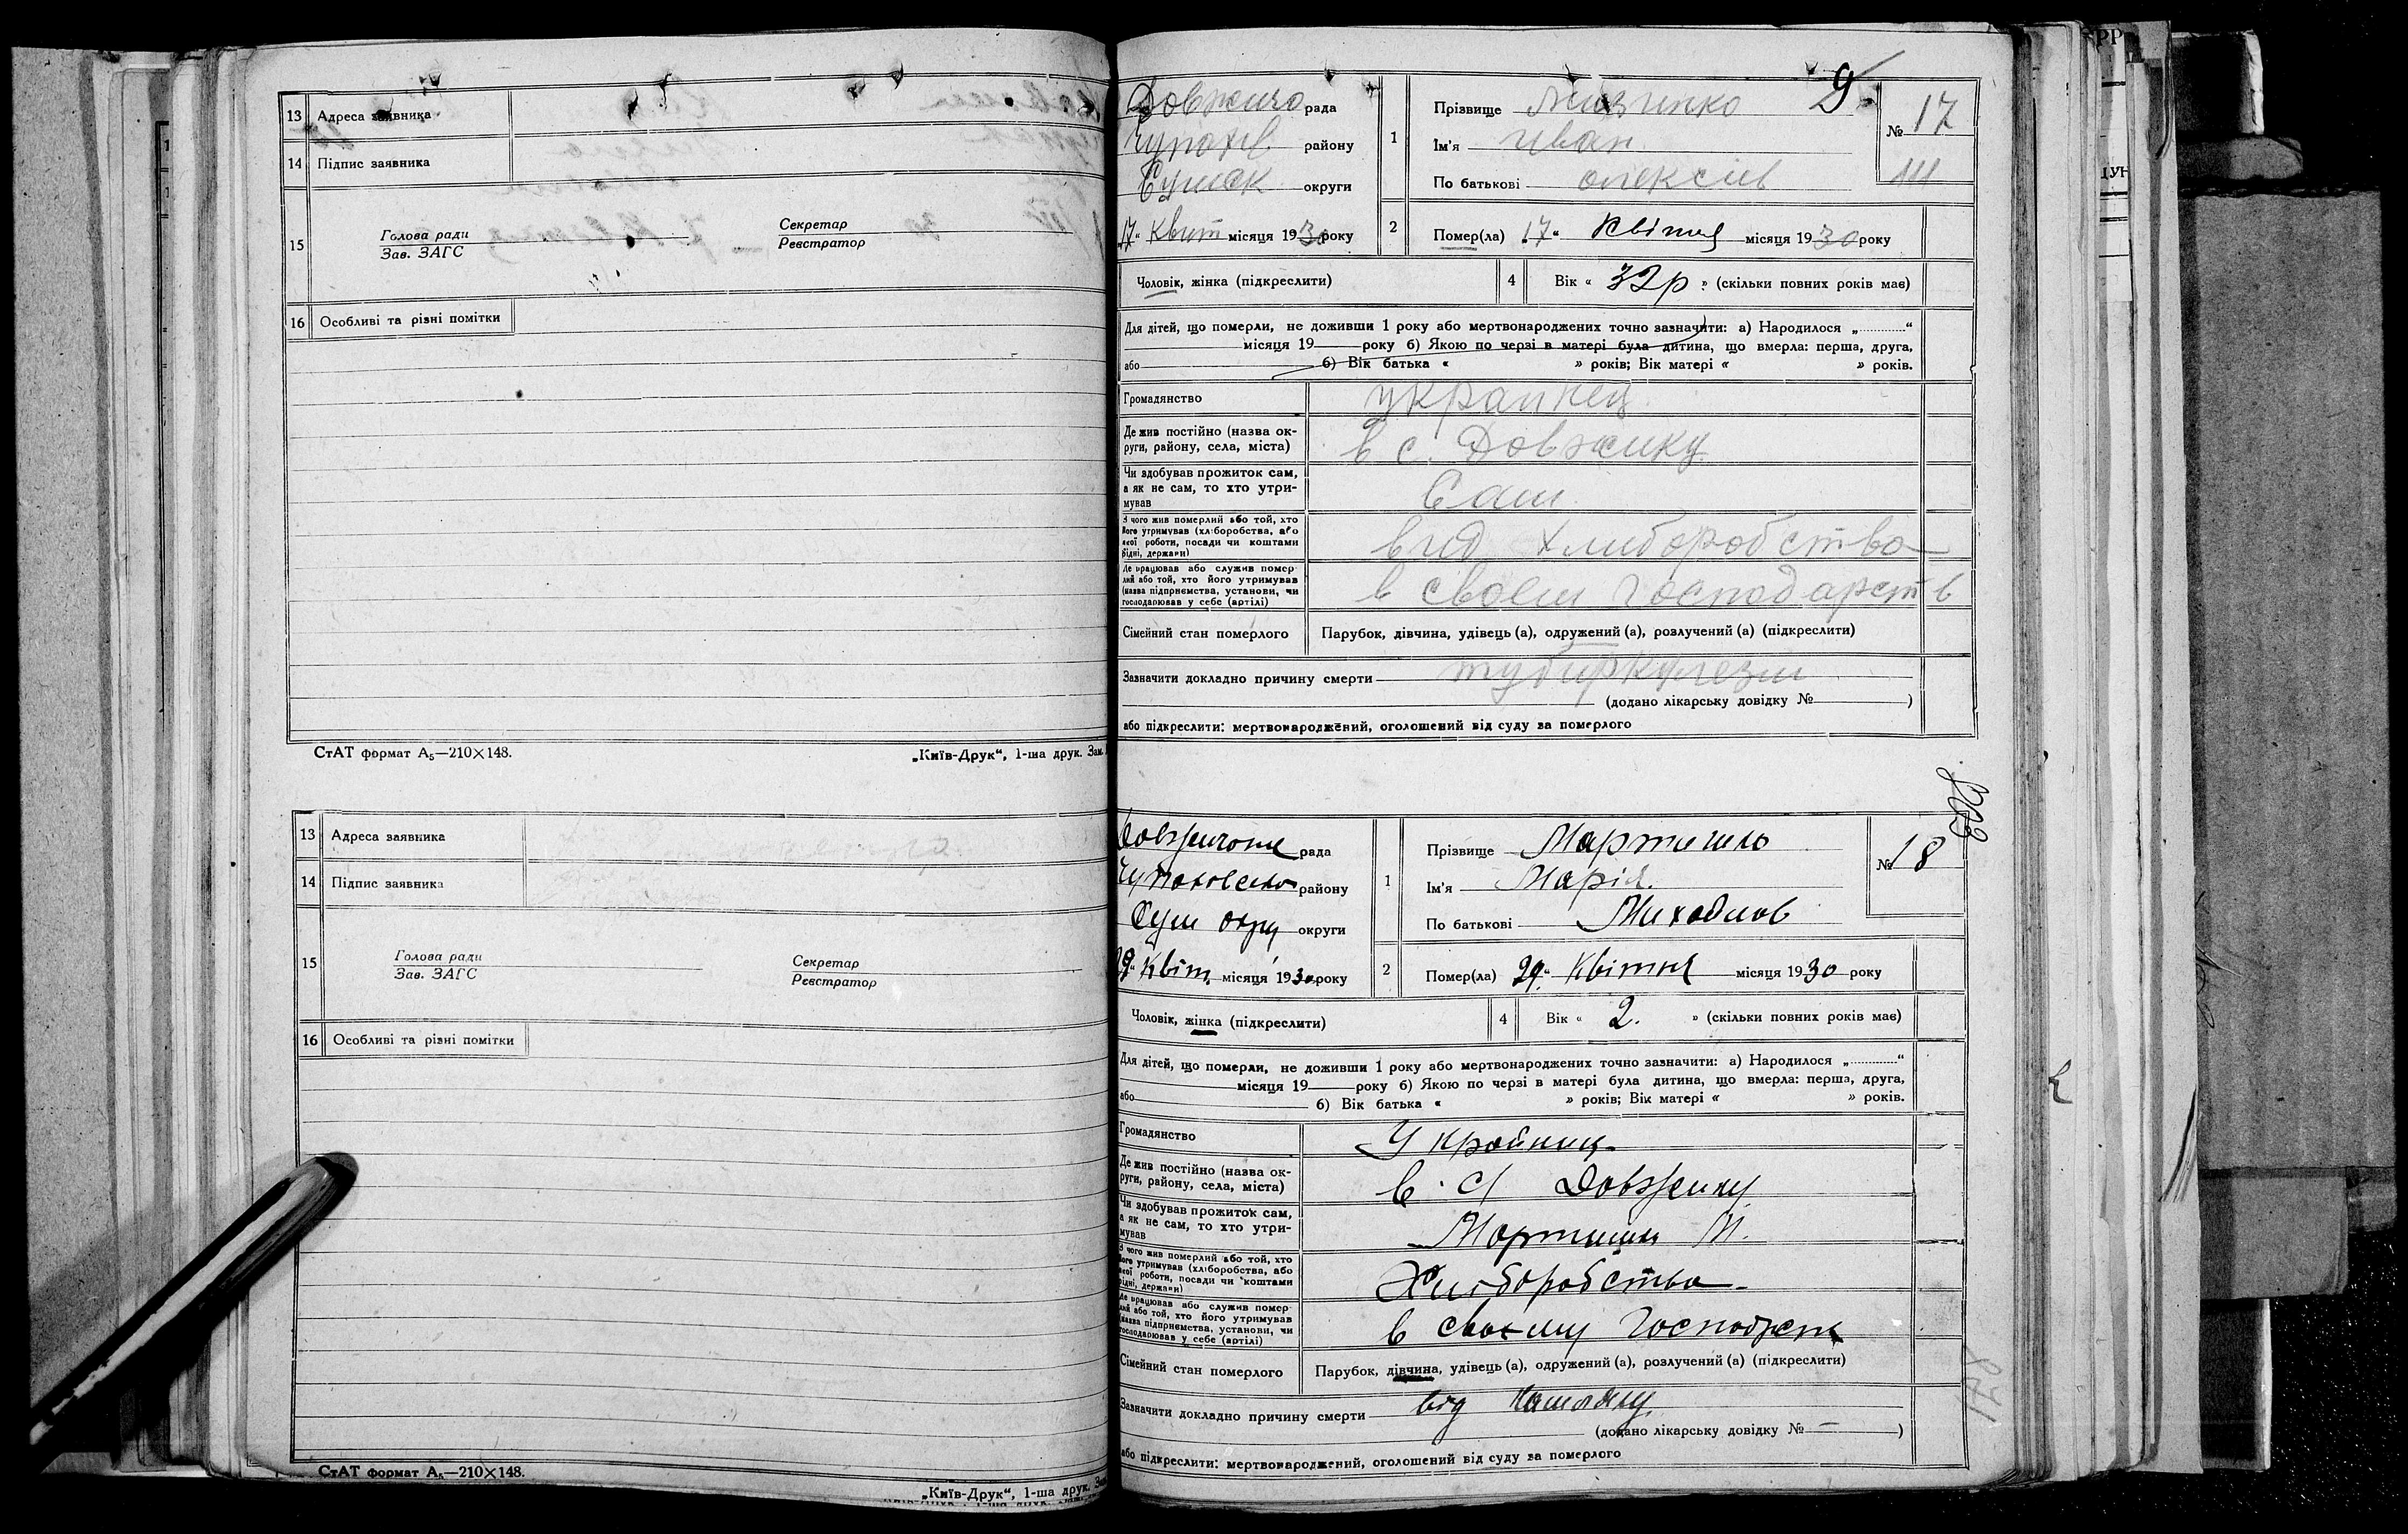 13 Адреса заявника
14 Підпис заявника
15 Голова ради
Зав. ЗАГС
Секретар
Реєстратор
16 Особливі та різні помітки
СтАТ формат А₅—210×148.
„Київ-Друк“, 1-ша друк. Зам.
13 Адреса заявника
14 Підпис заявника
15 Голова ради
Зав. ЗАГС
Секретар
Реєстратор
16 Особливі та різні помітки
СтАТ формат А₅—210×148.
„Київ-Друк“, 1-ша друк.
9
рада
району
Сумськ округи
„17“ Квит місяця 1930 року
1 Прізвище
Ім'я Иван
По батькові олексіїв
№ 17
2 Помер(ла) „17“ Квітня місяця 1930 року
Чоловік, жінка (підкреслити)
4 Вік « 32 р » (скільки повних років має)
Для дітей, що померли, не доживши 1 року або мертвонароджених точно зазначити: а) Народилося „............“
місяця 19 року б) Якою по черзі в матері була дитина, що вмерла: перша, друга,
або б) Вік батька « » років; Вік матері « » років.
Громадянство украинец
Де жив постійно (назва ок-
руги, району, села, міста) в с. Довжику
Чи здобував прожиток сам,
а як не сам, то хто утри-
мував Сам
З чого жив померлий або той, хто
його утримував (хліборобства, або
якої роботи, посади чи коштами
рідні, держави) від хлиборобства
Де працював або служив помер-
лий або той, хто його утримував
(назва підприємства, установи, чи
господарював у себе (артілі) в своем господарств
Сімейний стан померлого Парубок, дівчина, удівець (а), одружений (а), розлучений (а) (підкреслити)
Зазначити докладно причину смерти
(додано лікарську довідку № )
або підкреслити: мертвонароджений, оголошений від суду за померлого
рада
району
Сум окру округи
29“ Квіт. місяця 1930 року
1 Прізвище
Ім'я Марія.
По батькові
№ 18
2 Помер(ла) 29“ Квітня місяця 1930 року
Чоловік, жінка (підкреслити)
4 Вік « 2. » (скільки повних років має)
Для дітей, що померли, не доживши 1 року або мертвонароджених точно зазначити: а) Народилося „............“
місяця 19 року б) Якою по черзі в матері була дитина, що вмерла: перша, друга,
або б) Вік батька « » років; Вік матері « » років.
Громадянство
Де жив постійно (назва ок-
руги, району, села, міста) в с/ Довжику
Чи здобував прожиток сам,
а як не сам, то хто утри-
мував М.
З чого жив померлий або той, хто
його утримував (хліборобства, або
якої роботи, посади чи коштами
рідні, держави) Хліборобства
Де працював або служив помер-
лий або той, хто його утримував
(назва підприємства, установи, чи
господарював у себе (артілі) в своєму
Сімейний стан померлого Парубок, дівчина, удівець (а), одружений (а), розлучений (а) (підкреслити)
Зазначити докладно причину смерти від кашлюку
(додано лікарську довідку № — )
або підкреслити: мертвонароджений, оголошений від суду за померлого